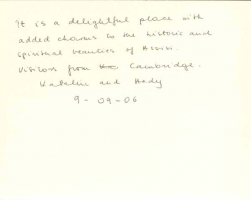 It is a delightful place with
added charms to the historic and
spiritual beauties of Assisi.
Visitors from the Cambridge.
Katalin and Hady
9 - 09 - 06